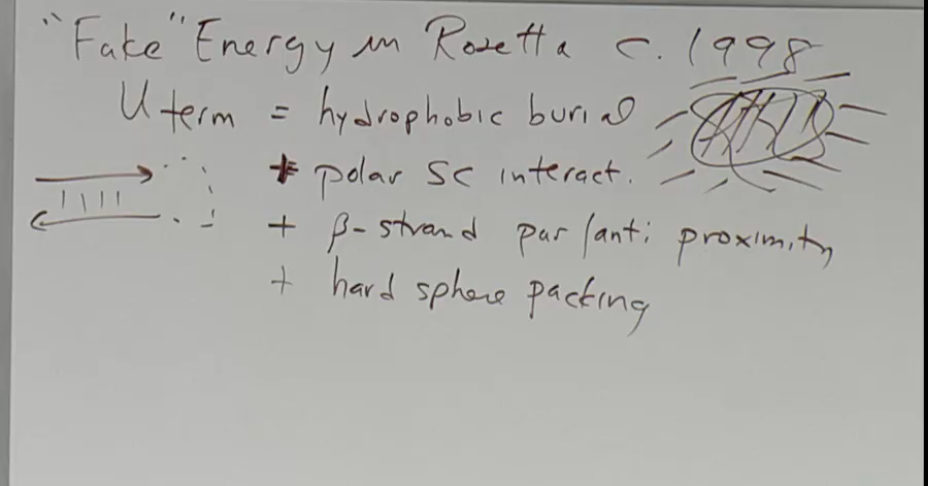 "Fake" Energy in Rosetta c. 1998
U term = hydrophobic burial
+ polar SC interact.
+ β-strand par/anti proximity
+ hard sphere packing